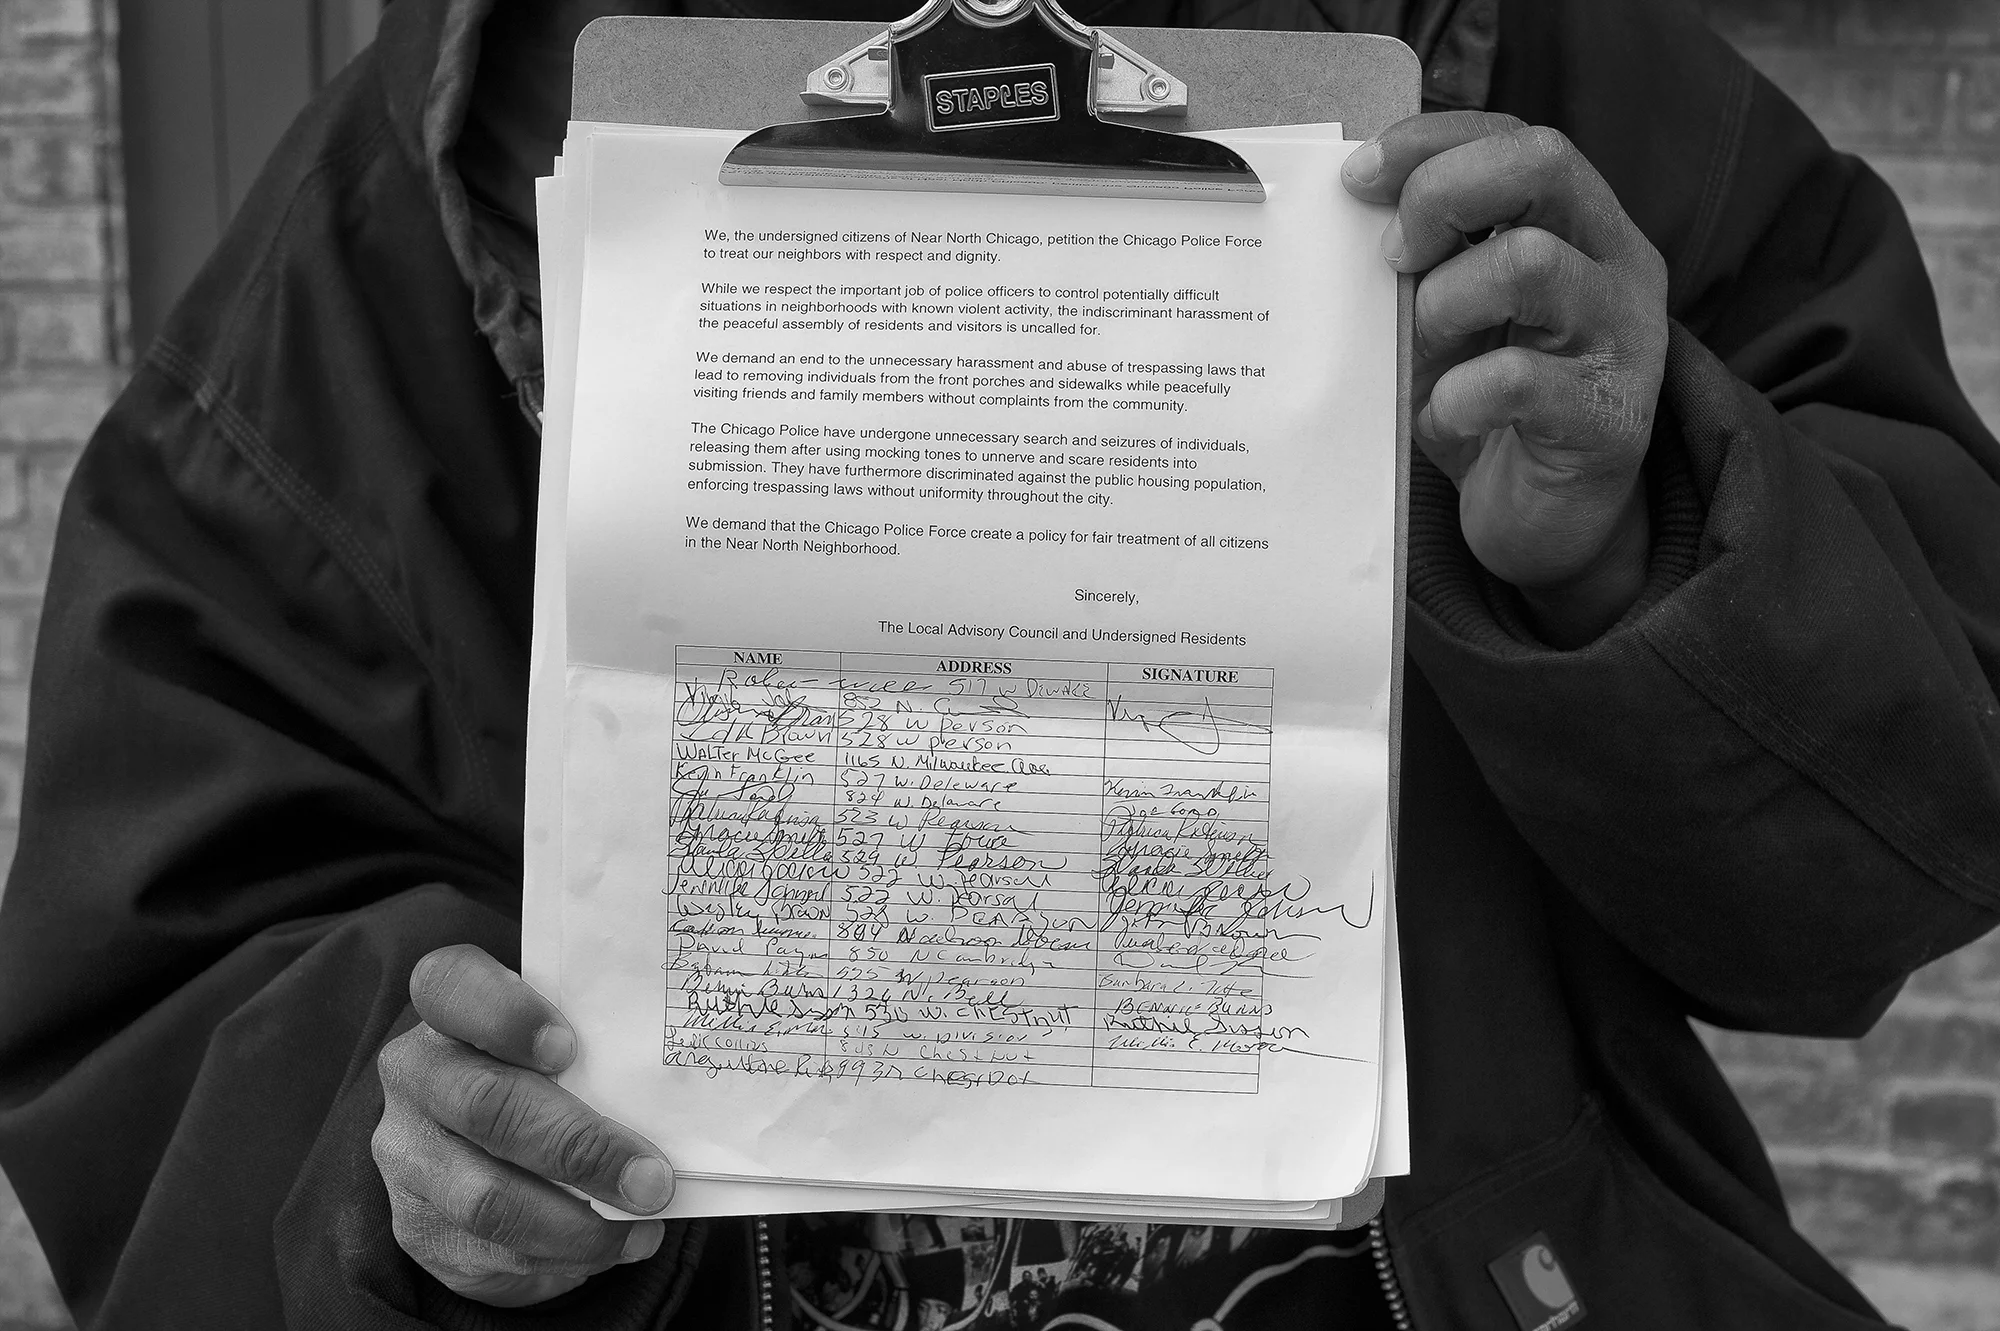 STAPLES
We, the undersigned citizens of Near North Chicago, petition the Chicago Police Force
to treat our neighbors with respect and dignity.
While we respect the important job of police officers to control potentially difficult
situations in neighborhoods with known violent activity, the indiscriminant harassment of
the peaceful assembly of residents and visitors is uncalled for.
We demand an end to the unnecessary harassment and abuse of trespassing laws that
lead to removing individuals from the front porches and sidewalks while peacefully
visiting friends and family members without complaints from the community.
The Chicago Police have undergone unnecessary search and seizures of individuals,
releasing them after using mocking tones to unnerve and scare residents into
submission. They have furthermore discriminated against the public housing population,
enforcing trespassing laws without uniformity throughout the city.
We demand that the Chicago Police Force create a policy for fair treatment of all citizens
in the Near North Neighborhood.
Sincerely,
The Local Advisory Council and Undersigned Residents
NAME ADDRESS SIGNATURE
517 W
852 N.
528 W person
528 W person
WALTER McGee 1165 N. Milwaukee
Franklin 527 W. Deleware
824 W. Delaware
523 W Pearson
527 W
529 W Pearson
522 W.
522 W.
Brown W. PEARSON Brown
David 850 N Cambridge
525 W Pearson Barbara
1326 N. Bell BENNIE BURNS
530 W. CHESTNUT Ruthie
W. Division Willie E.
Collins N Chestnut